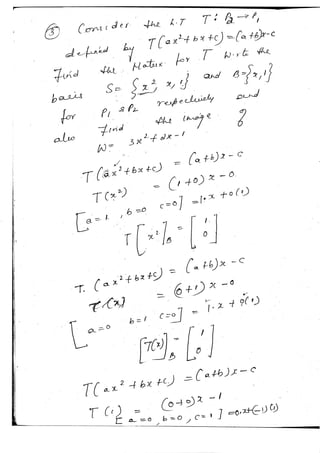 ③ Consider the L.T T: P2→P1
defined by T(ax²+bx+c) = (a+b)x-c
Find the Matrix for T w.r.t the
basis S= {x², x, 1} and B={x,1}
for P1 & P2 respectively and
also find the image of
W= 3x²+2x-1
T(ax²+bx+c) = (a+b)x-c
T(x²) = (1+0)x-0
[a=1, b=0 c=0] =1·x+0(1)
T[x²]B = [1 0]
T.(ax²+bx+c) = (a+b)x-c
T(x) = (0+1)x-0
[a=0 b=1 c=0] = 1.x+0(1)
[T(x)]B = [1 0]
T(ax²+bx+c) = (a+b)x-c
T(1) = (0+0)x-1
[a=0, b=0, c=1] =0.x+(-1)(1)